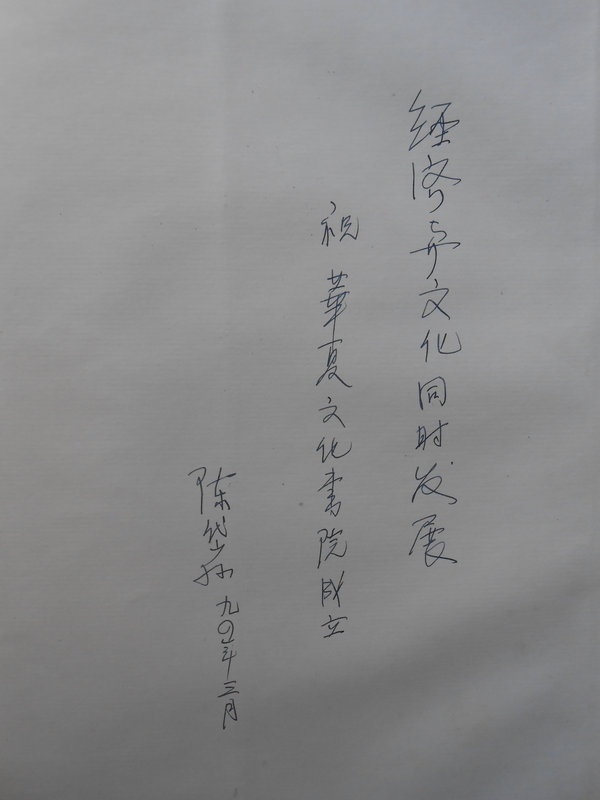 经济与文化同时发展
祝華夏文化書院成立
陈岱孙 九〇年三月